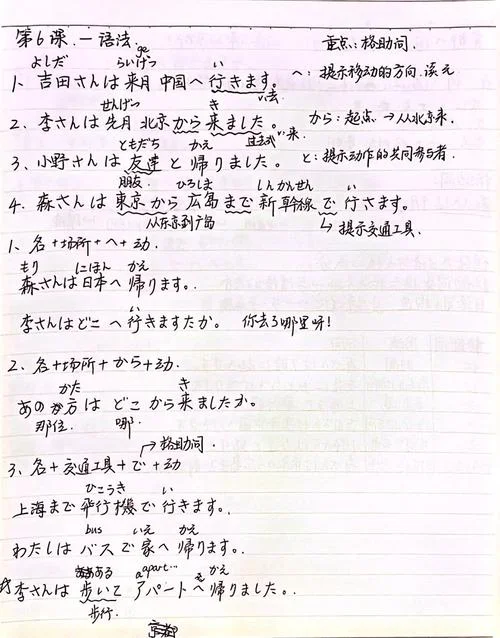 第6课.一语法. 重点:格助词.
よしだ らいげつ ge い
1、吉田さんは来月中国へ行きます。 へ:提示移动的方向.读え
去
せんげつ き
2、李さんは先月北京から来ました。 から:起点→从北京来.
来.
ともだち かえ
3、小野さんは友達と帰りました。 と:提示动作的共同参与者.
朋友. ひろしま しんかんせん い
4、森さんは東京から広島まで新幹線で行きます。
从东京到广岛 ↳提示交通工具.
1、名+場所+へ+动.
もり にほん かえ
森さんは日本へ帰ります。
い
李さんはどこへ行きますたか。 你去了哪里呀!
2、名+場所+から+动.
かた き
あの方はどこから来ましたか。
那位. 哪. →格助词.
3、名+交通工具+で+动
ひこうき い
上海まで飛行機で行きます。
bus いえ かえ
わたしはバスで家へ帰ります。
ある apart… え かえ
李さんは歩いてアパートへ帰りました。
步行.